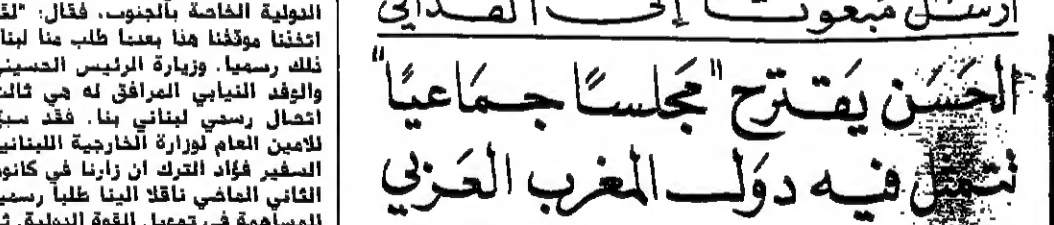 أرسل مبعوثا إلى القذافي
الحَسَن يَقترح "مَجلسًا جمَاعيًا"
تتمثل فيه دوَل المغرب العَربي
الدولية الخاصة بالجنوب. فقال: "لقد
اتخذنا موقفنا هذا بعدما طلب منا لبنان
ذلك رسميا. وزيارة الرئيس الحسيني
والوفد النيابي المرافق له هي ثالث
اتصال رسمي لبناني بنا. فقد سبق
للامين العام لوزارة الخارجية اللبنانية
السفير فؤاد الترك ان زارنا في كانون
الثاني الماضي ناقلا الينا طلبا رسميا
للمساهمة في تمويل القوة الدولية.